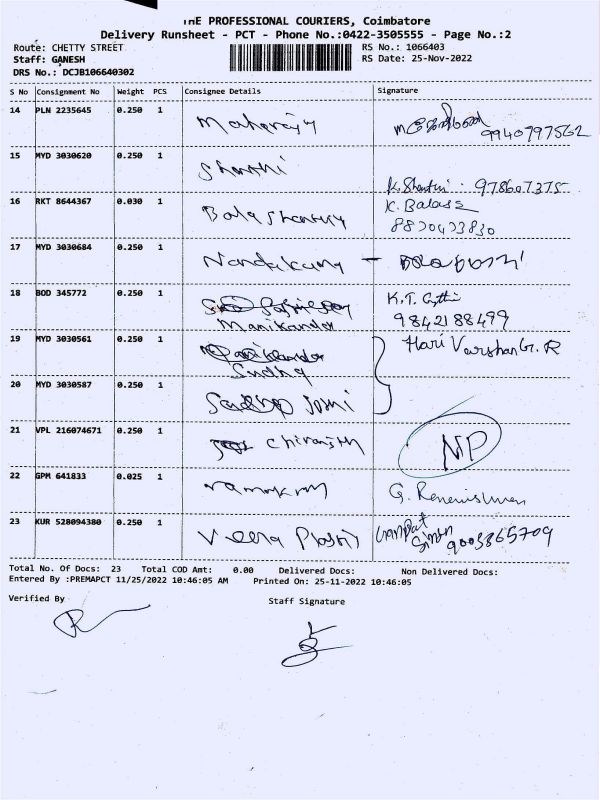 THE PROFESSIONAL COURIERS, Coimbatore
Delivery Runsheet - PCT - Phone No.:0422-3505555 - Page No.:2
Route: CHETTY STREET RS No.: 1066403
Staff: GANESH RS Date: 25-Nov-2022
DRS No.: DCJB106640302
S No Consignment No Weight PCS Consignee Details Signature
14 PLN 2235645 0.250 1 Maharaja 9940797562
15 MYD 3030620 0.250 1 Shanthi K. Shanthi . 978607375
16 RKT 8644367 0.030 1 K. Balas
8870473830
17 MYD 3030684 0.250 1 Nandakumar -
18 BOD 345772 0.250 1 K.T.
Manikandan 9842188499
19 MYD 3030561 0.250 1 Hari Varshan G. R
Sudha
20 MYD 3030587 0.250 1 Joshi
21 VPL 216074671 0.250 1 Chiranjith NP
22 GPM 641833 0.025 1 G.
23 KUR 528094380 0.250 1 Veera Plastic Ganpat
Singh 9003365709
Total No. Of Docs: 23 Total COD Amt: 0.00 Delivered Docs: Non Delivered Docs:
Entered By :PREMAPCT 11/25/2022 10:46:05 AM Printed On: 25-11-2022 10:46:05
Verified By Staff Signature